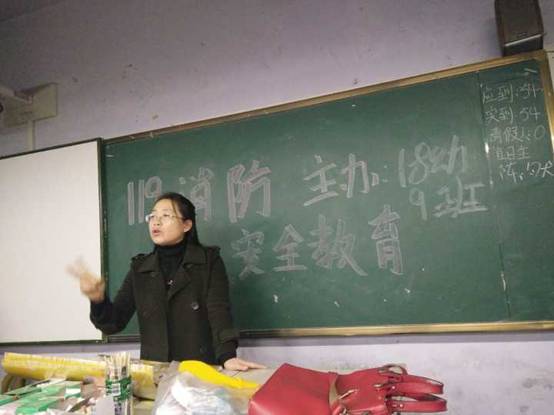 119消防 主办:18幼
9班
安全教育
应到:54
实到:54
请假:0
值日生
陈